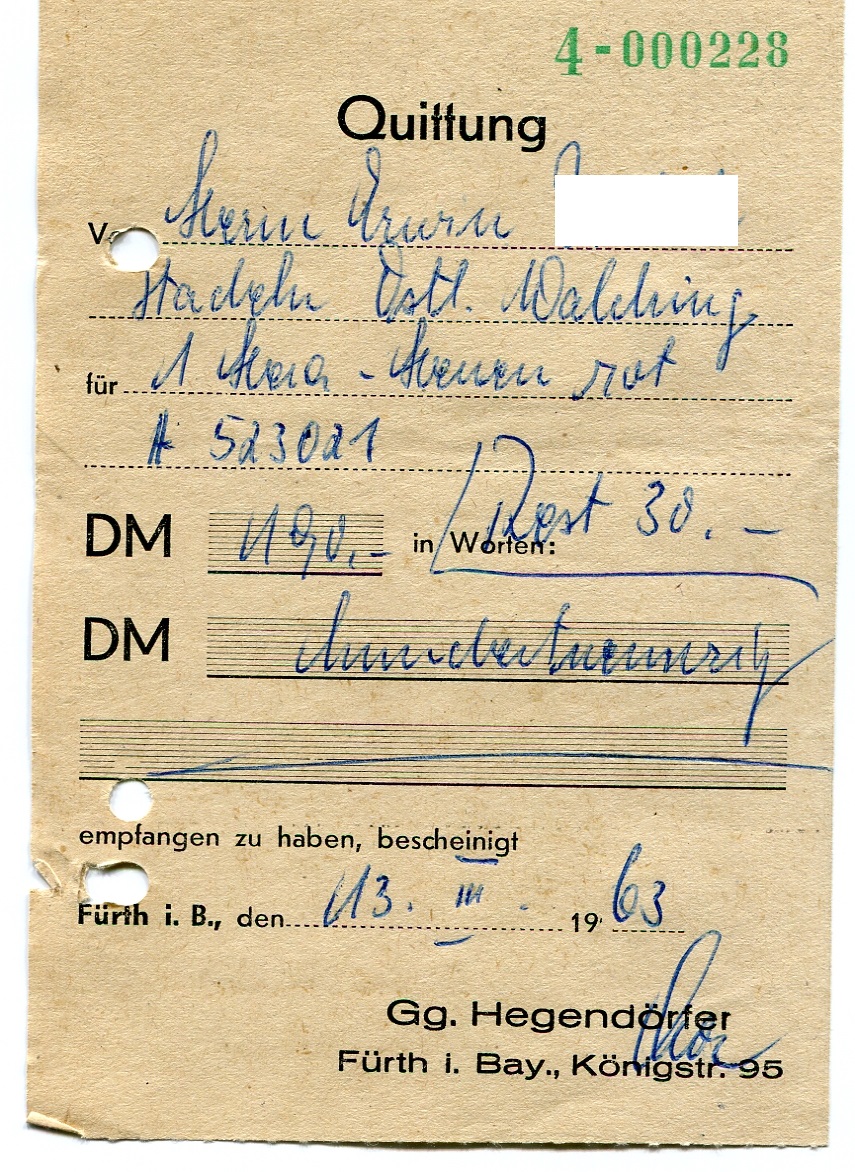 4-000228
Quittung
V Herrn Erwin
Stadeln Östl. Waldring
für 1 Hera - Herren rot
# 523021
DM 190.- in Worten: Rest 30.-
DM hundertneunzig
empfangen zu haben, bescheinigt
Fürth i. B., den 13. III. 1963
Gg. Hegendörfer
Fürth i. Bay., Königstr. 95